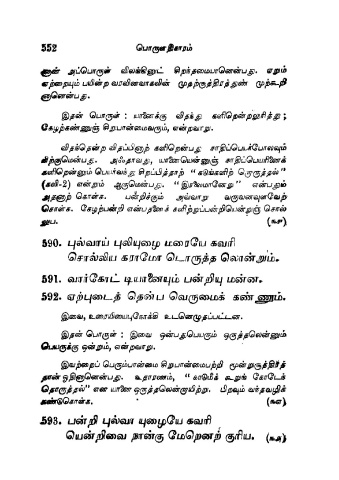 552 பொருளதிகாரம்
னான் அப்பொருள் விலக்கினுட் சிறந்தமையானென்பது. ஏறும்
ஏற்றையும் பயின்ற வரவினவாகலின் முதற்சூத்திரத்துண் முற்கூறி
னானென்பது.
இதன் பொருள் : யானைக்கு விதந்து களிறென்றலுரித்து ;
கேழற்கண்ணுஞ் சிறுபான்மைவரும், என்றவாறு.
விதந்தென்ற விதப்பினாற் களிறென்பது சாதிப்பெயர்போலவும்
நிற்குமென்பது. அஃதாவது, யானையென்னுஞ் சாதிப்பெயரினைக்
களிறென்னும் பெயர்வந்து சிறப்பித்தாற் “கடுங்களிற் றொருத்தல்”
(கலி-2) என்றும் ஆகுமென்பது. என்பதும்
அதனாற் கொள்க. பன்றிக்கும் அவ்வாறு வருவனவுளவேற்
கொள்க. கேழற்பன்றி என்பதனைச் களிற்றுப்பன்றியென்றுஞ் சொல்
லுப.
590. புல்வாய் புலியுழை மரையே கவரி
சொல்லிய கராமோ டொருத்த லொன்றும்.
591. வார்கோட் டியானையும் பன்றியு மன்ன.
592. ஏற்புடைத் தென்ப வெருமைக் கண்ணும்.
இவை, உரையியைபுநோக்கி உடனெழுதப்பட்டன.
இதன் பொருள் : இவை ஒன்பதுபெயரும் ஒருத்தலென்னும்
பெயருக்கு ஒன்றும், என்றவாறு.
இவற்றைப் பெரும்பான்மை சிறுபான்மைபற்றி மூன்றுசூத்திரத்
தான் ஓதினானென்பது. உதாரணம், கோடைக்
தொருத்தல்” என யானை ஒருத்தலென்றாயிற்று. பிறவும் வந்தவழிக்
கண்டுகொள்க.
593. பன்றி புல்வா யுழையே கவரி
யென்றிவை நான்கு மேறெனற் குரிய.